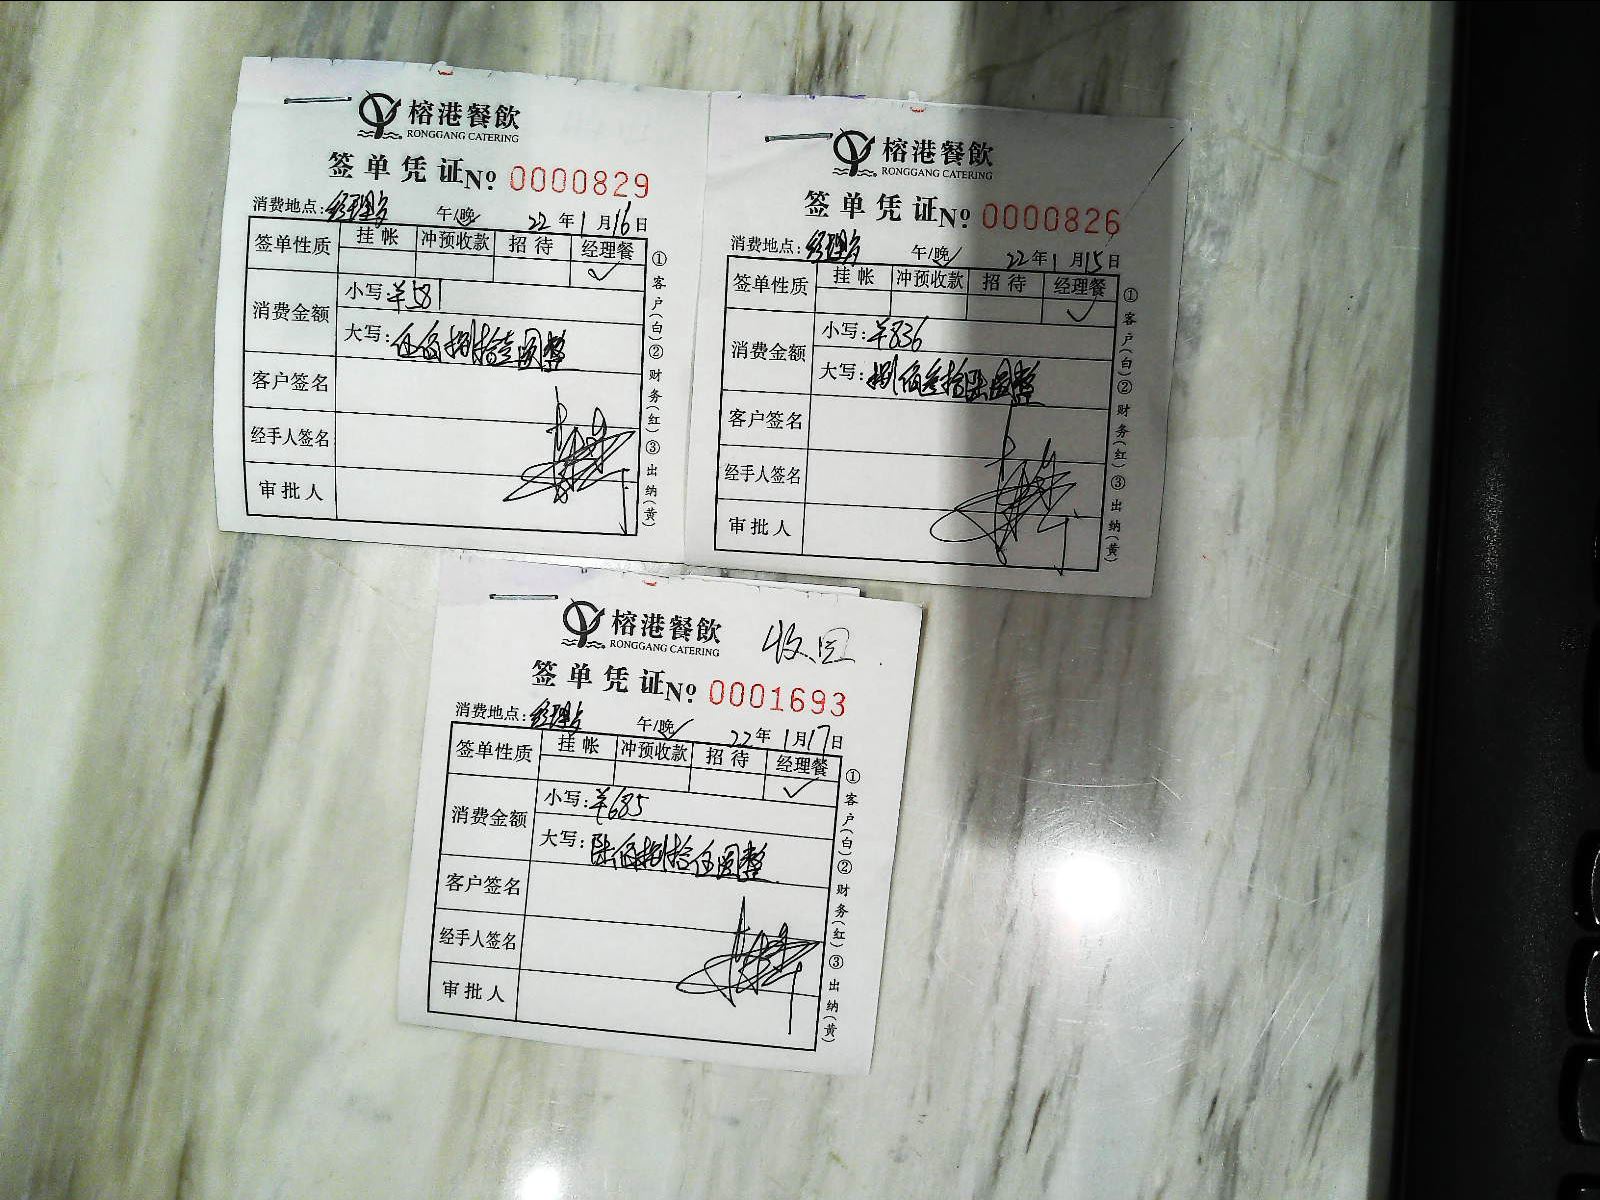 榕港餐飲
RONGGANG CATERING
签单凭证 № 0000829
消费地点: 经理 午/晚 22年1月16日
签单性质 挂帐 冲预收款 招待 经理餐
✓
消费金额 小写: ¥581
大写: 伍佰捌拾壹圆整
客户签名
经手人签名
审批人
①客户(白)②财务(红)③出纳(黄)
榕港餐飲
RONGGANG CATERING
签单凭证 № 0000826
消费地点: 经理 午/晚 22年1月15日
签单性质 挂帐 冲预收款 招待 经理餐
✓
消费金额 小写: ¥836
大写: 捌佰叁拾陆圆整
客户签名
经手人签名
审批人
①客户(白)②财务(红)③出纳(黄)
榕港餐飲
RONGGANG CATERING
收回
签单凭证 № 0001693
消费地点: 经理 午/晚 22年1月17日
签单性质 挂帐 冲预收款 招待 经理餐
✓
消费金额 小写: ¥685
大写: 陆佰捌拾伍圆整
客户签名
经手人签名
审批人
①客户(白)②财务(红)③出纳(黄)